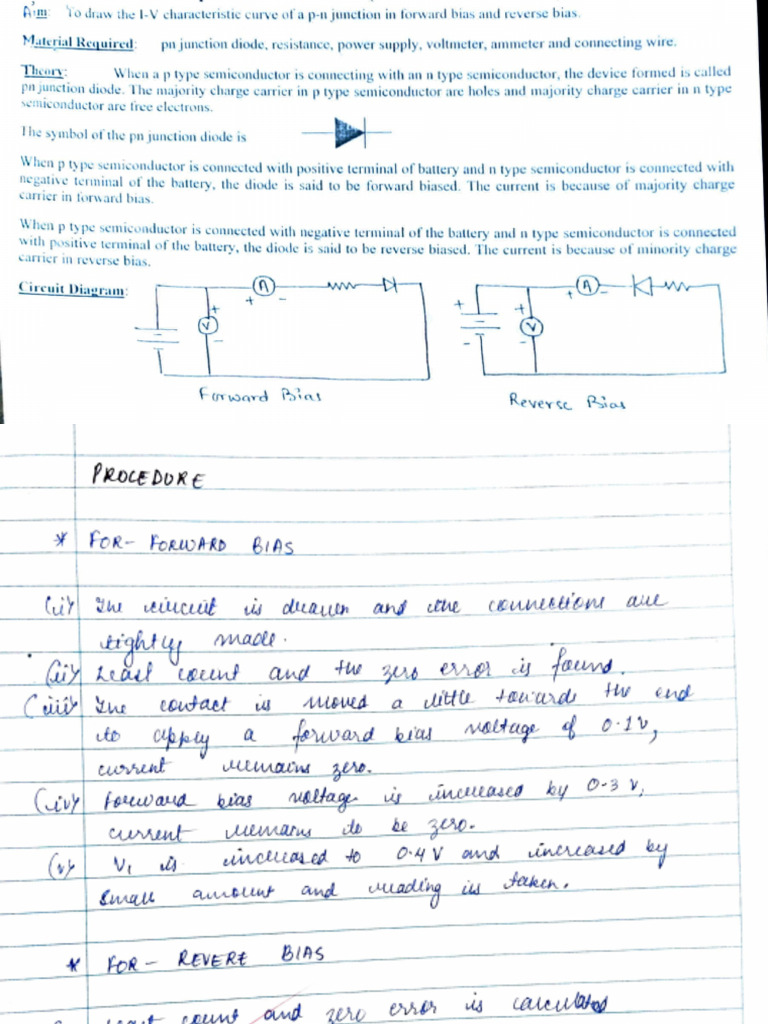 Aim: To draw the I-V characteristic curve of a p-n junction in forward bias and reverse bias.
Material Required: pn junction diode, resistance, power supply, voltmeter, ammeter and connecting wire.
Theory: When a p type semiconductor is connecting with an n type semiconductor, the device formed is called
pn junction diode. The majority charge carrier in p type semiconductor are holes and majority charge carrier in n type
semiconductor are free electrons.
The symbol of the pn junction diode is
When p type semiconductor is connected with positive terminal of battery and n type semiconductor is connected with
negative terminal of the battery, the diode is said to be forward biased. The current is because of majority charge
carrier in forward bias.
When p type semiconductor is connected with negative terminal of the battery and n type semiconductor is connected
with positive terminal of the battery, the diode is said to be reverse biased. The current is because of minority charge
carrier in reverse bias.
Circuit Diagram:
A
+ -
+
V
-
Forward Bias
A
+ -
+
+
V
-
-
Reverse Bias
PROCEDURE
* FOR- FORWARD BIAS
(i) The circuit is drawn and the connections are
tightly made.
(ii) Least count and the zero error is found.
(iii) The contact is moved a little towards the end
to apply a forward bias voltage of 0.1v,
current remains zero.
(iv) Forward bias voltage is increased by 0.3 v,
current remains to be zero.
(v) V1 is increased to 0.4 V and increased by
small amount and reading is taken.
* FOR - REVERE BIAS
Least count and zero error is calculated